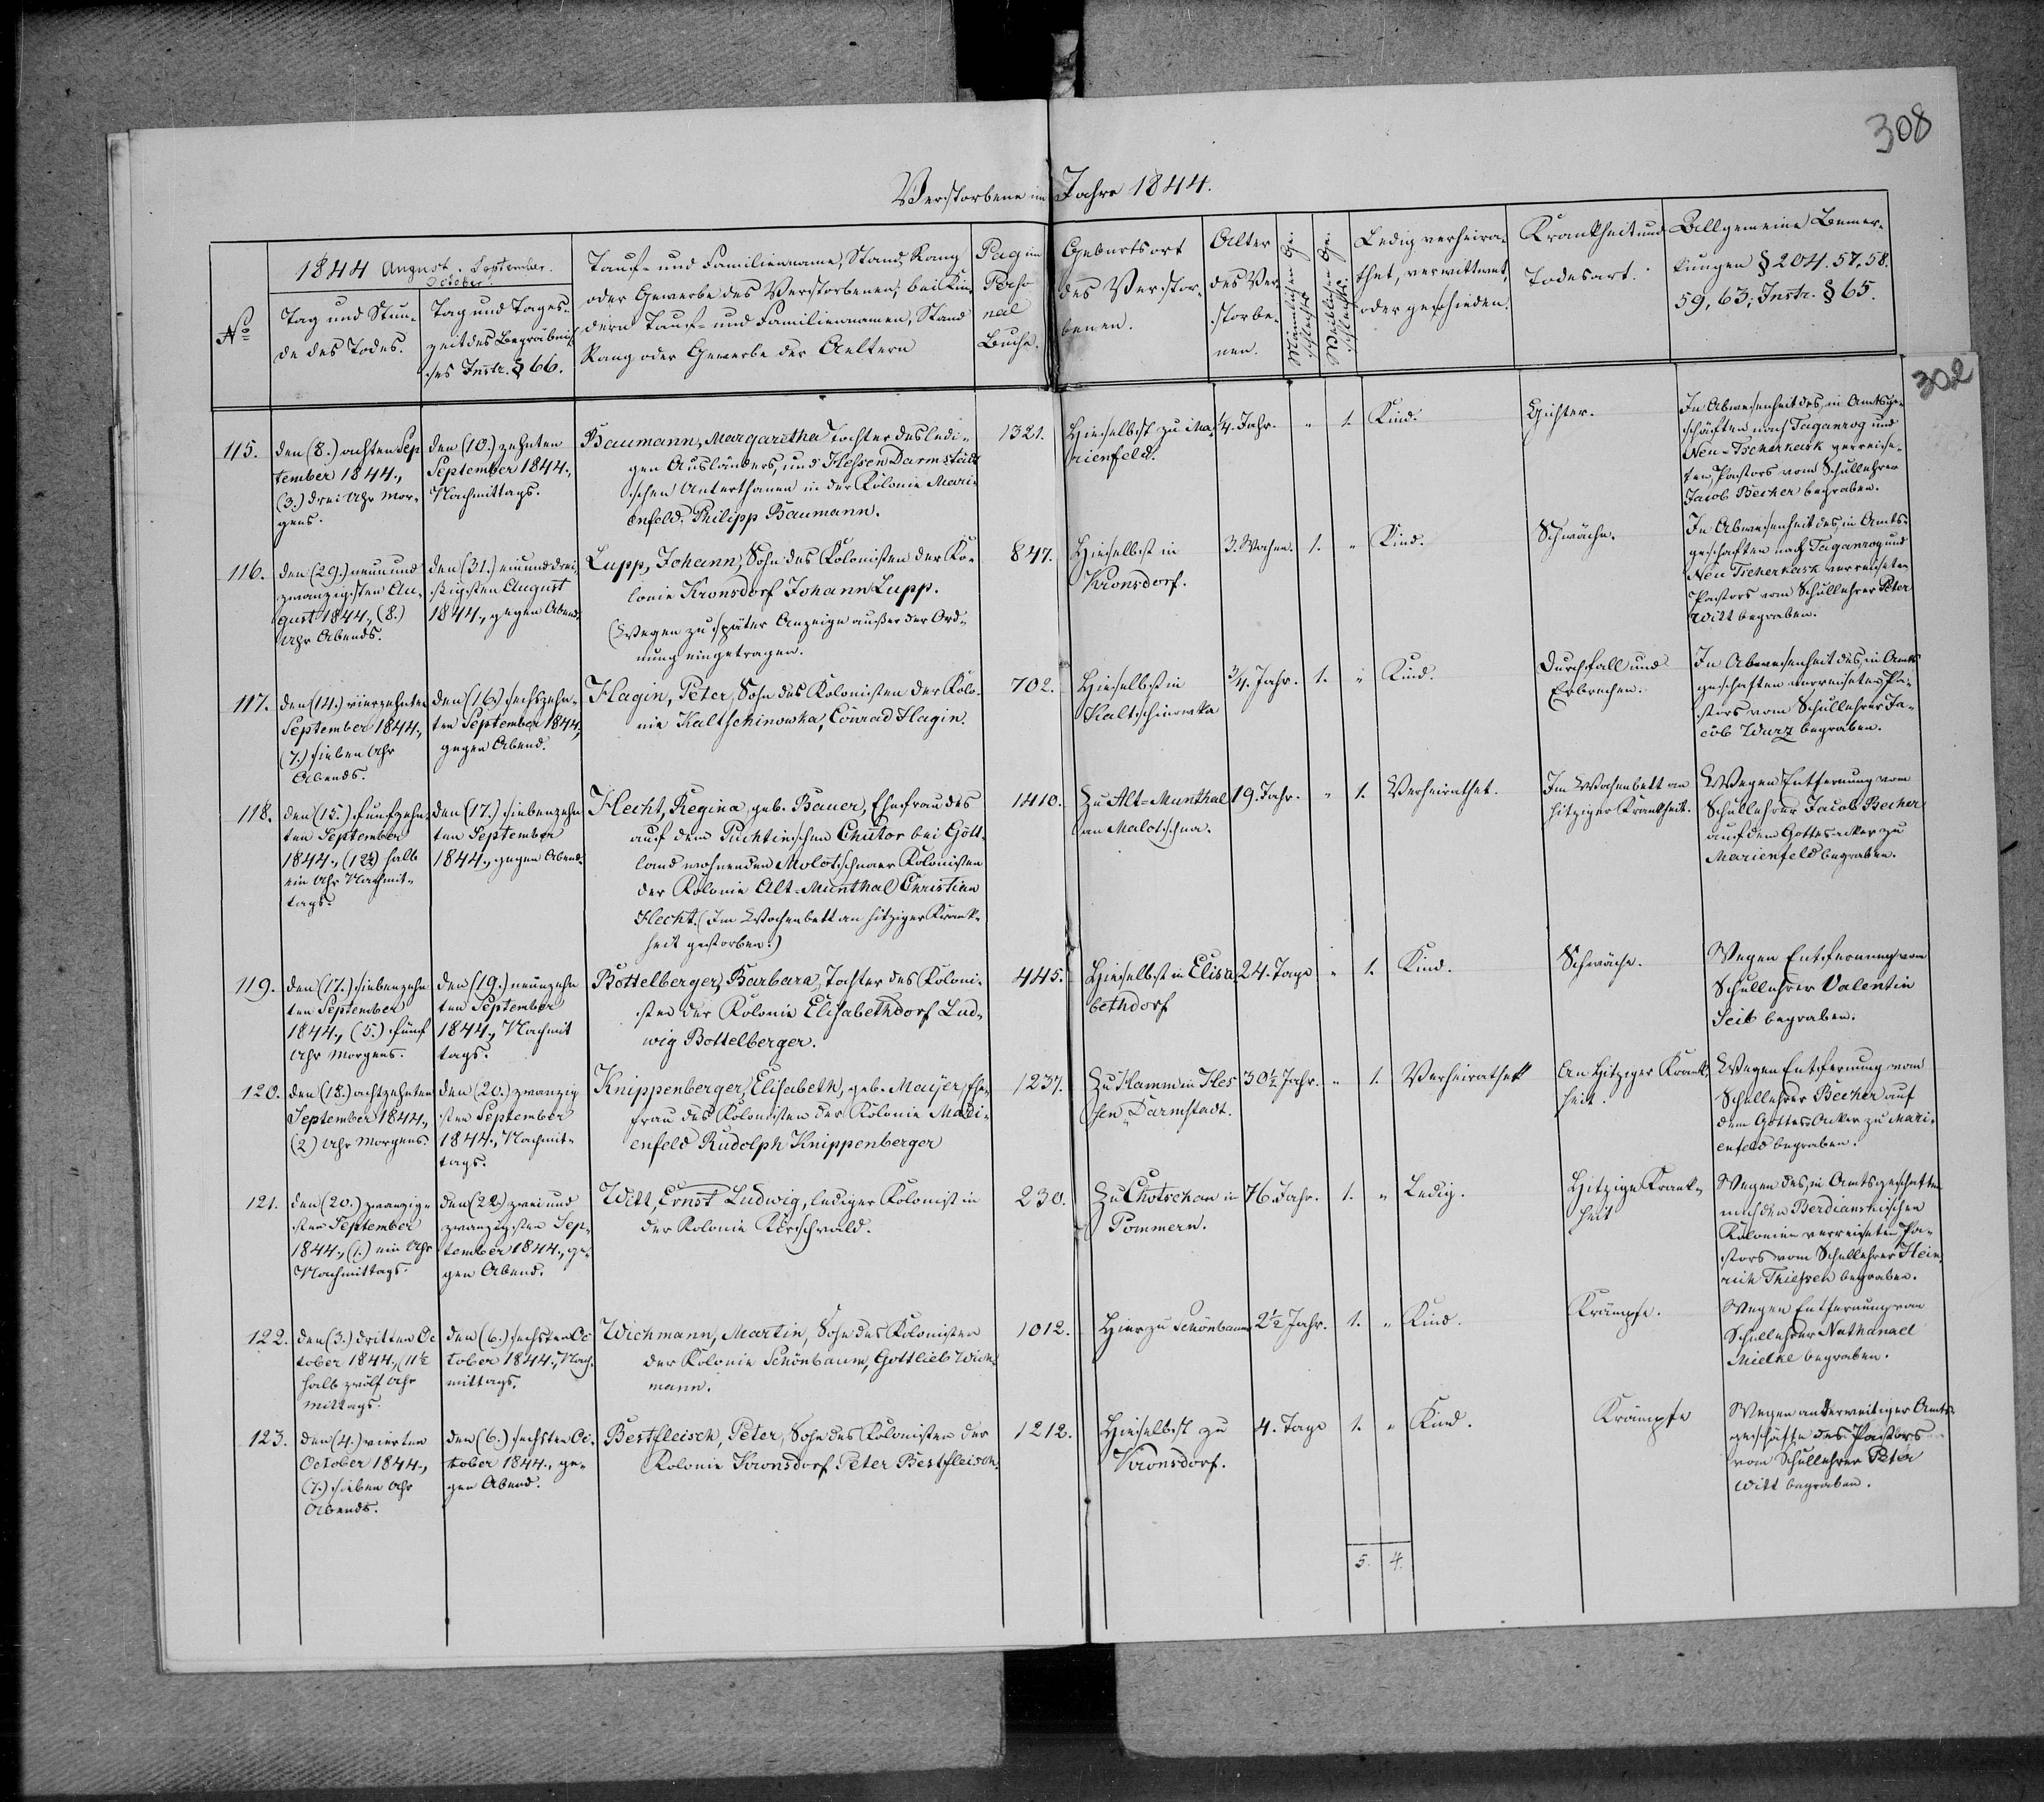 308
Verstorbene im Jahre 1844.
302
No
1844 August. September.
October.
Tag und Stun-
de des Todes.
Tag und Tages-
zeit des Begräbnis-
ses Instr. § 66.
Tauf- und Familienname, Stand, Rang
oder Gewerbe des Verstorbenen, bei Kin-
dern Tauf- und Familiennamen, Stand
Rang oder Gewerbe der Aeltern
Pag im
Perso
nal
Buche.
Geburtsort
des Verstor-
benen.
Alter
des Ver-
storbe-
nen.
Männlichen Ge-
schlechts
Weiblichen Ge-
schlechts.
Ledig verheira-
thet, verwittwet,
oder geschieden.
Krankheit und
Todesart.
Allgemeine Bemer-
kungen § 204. 57, 58.
59, 63; Instr. § 65.
115.
den (8.) achten Sep
tember 1844.,
(3.) drei Uhr Mor-
gens.
den (10.) zehnten
September 1844.,
Nachmittags.
Baumann, Margaretha, Tochter des ledi-
gen Ausländers, und Hessen Darmstädt
schen Unterthanen in der Kolonie Mari-
enfeld, Philipp Baumann.
1321.
Hieselbst zu Ma-
rienfeld.
¼. Jahr.
"
1.
Kind.
Gichter.
In Abwesenheit des, in Amtsge-
schäften nach Taganrog und
Neu-Tscherkask verreise-
ten, Pastors vom Schullehrer
Jacob Becher begraben.
116.
den (29.) neun und
zwanzigsten Au-
gust 1844., (8.)
Uhr Abends.
den (31.) ein und drei-
ßigsten August
1844., gegen Abend.
Lupp, Johann, Sohn des Kolonisten der Ko-
lonie Kronsdorf Johann Lupp.
(Wegen zu später Anzeige außer der Ord-
nung eingetragen.
847.
Hieselbst in
Kronsdorf.
3. Wochen.
1.
"
Kind.
Schwäche.
In Abwesenheit des, in Amts-
geschäften nach Taganrog und
Neu Tscherkask verreiseten
Pastors vom Schullehrer Peter
Witt begraben.
117.
den (14.) vierzehnten
September 1844.,
(7.) sieben Uhr
Abends.
den (16.) sechszehn-
ten September 1844,
gegen Abend.
Hagin, Peter, Sohn des Kolonisten der Kolo-
nie Kaltschinowka, Conrad Hagin.
702.
Hieselbst in
Kaltschinowka
¾. Jahr.
1.
"
Kind.
Durchfall und
Erbrechen.
In Abwesenheit des, in Amts
geschäften verreiseten Pa-
stors vom Schullehrer Ja-
cob Wurz begraben.
118.
den (15.) fünfzehn-
ten September
1844., (12½) halb
ein Uhr Nachmit-
tags.
den (17.) siebenzehn
ten September
1844., gegen Abend.
Hecht, Regina, geb. Bauer, Ehefrau des
auf dem Puchtinschen Chutor bei Gött-
land wohnenden Molotschnaer Kolonisten
der Kolonie Alt-Munthal Christian
Hecht. (Im Wochenbett an hitziger Krank-
heit gestorben.)
1410.
Zu Alt-Munthal
an Malotschna.
19. Jahr.
"
1.
Verheirathet.
Im Wochenbett an
hitziger Krankheit.
Wegen Entfernung vom
Schullehrer Jacob Becher
auf dem Gottesacker zu
Marienfeld begraben.
119.
den (17.) siebenzehn
ten September
1844., (5.) fünf
Uhr Morgens.
den (19.) neunzehn
ten September
1844., Nachmit
tags.
Bottelberger, Barbara, Tochter des Koloni-
sten der Kolonie Elisabethdorf Lud-
wig Bottelberger.
445.
Hieselbst in Elisa-
bethdorf
24. Tage
"
1.
Kind.
Schwäche.
Wegen Entfernung vom
Schullehrer Valentin
Seib begraben.
120.
den (18.) achtzehnten
September 1844.,
(2) Uhr Morgens.
den (20.) zwanzig
sten September
1844., Nachmit-
tags.
Knippenberger, Elisabeth, geb. Mayer, Ehe-
frau des Kolonisten der Kolonie Mari-
enfeld Rudolph Knippenberger
1237.
Zu Hamm in Hes
sen Darmstadt.
30½ Jahr.
"
1.
Verheirathet
An hitziger Krank-
heit.
Wegen Entfernung vom
Schullehrer Becher auf
dem Gottes Acker zu Mari-
enfeld begraben.
121.
den (20.) zwanzig-
sten September
1844., (1.) ein Uhr
Nachmittags.
den (22.) zwei und
zwanzigsten Sep-
tember 1844., ge-
gen Abend.
Witt, Ernst Ludwig, lediger Kolonist in
der Kolonie Kirschwald.
230.
Zu Chotschan in
Pommern.
76. Jahr.
1.
"
Ledig.
Hitzige Krank-
heit
Wegen des, in Amtsgeschäften
nach den Berdianskischen
Kolonien verreiseten Pa-
stors vom Schullehrer Hein-
rich Thiessen begraben.
122.
den (3.) dritten Oc
tober 1844., (11½
halb zwölf Uhr
Mittags.
den (6.) sechsten Oc
tober 1844., Nach-
mittags.
Wichmann, Martin, Sohn des Kolonisten
der Kolonie Schönbaum, Gottlieb Wich-
mann.
1012.
Hier zu Schönbaum
2½ Jahr.
1.
"
Kind.
Krämpfe.
Wegen Entfernung vom
Schullehrer Nathanael
Mielke begraben.
123.
den (4.) vierten
October 1844.,
(7.) sieben Uhr
Abends.
den (6.) sechsten Oc-
tober 1844., ge-
gen Abend.
Bestfleisch, Peter, Sohn des Kolonisten der
Kolonie Kronsdorf Peter Bestfleisch.
1212.
Hieselbst zu
Kronsdorf.
4. Tage
1.
"
Kind.
Krämpfe
Wegen anderweitiger Amts-
geschäfte des Pastors
vom Schullehrer Peter
Witt begraben.
5.
4.